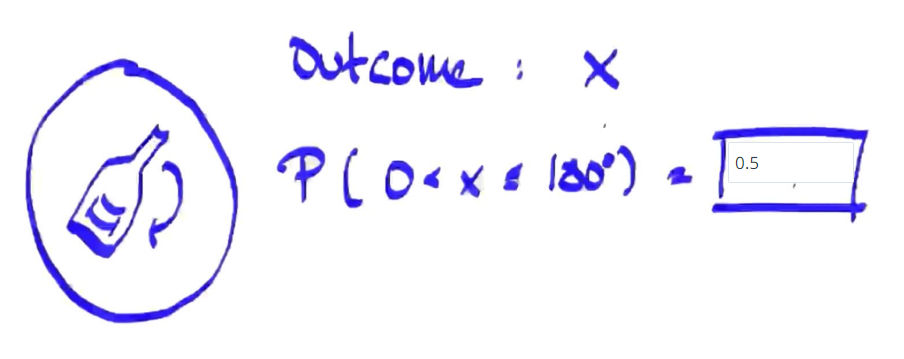 Outcome : X
P( 0 < x ≤ 180°) = 0.5